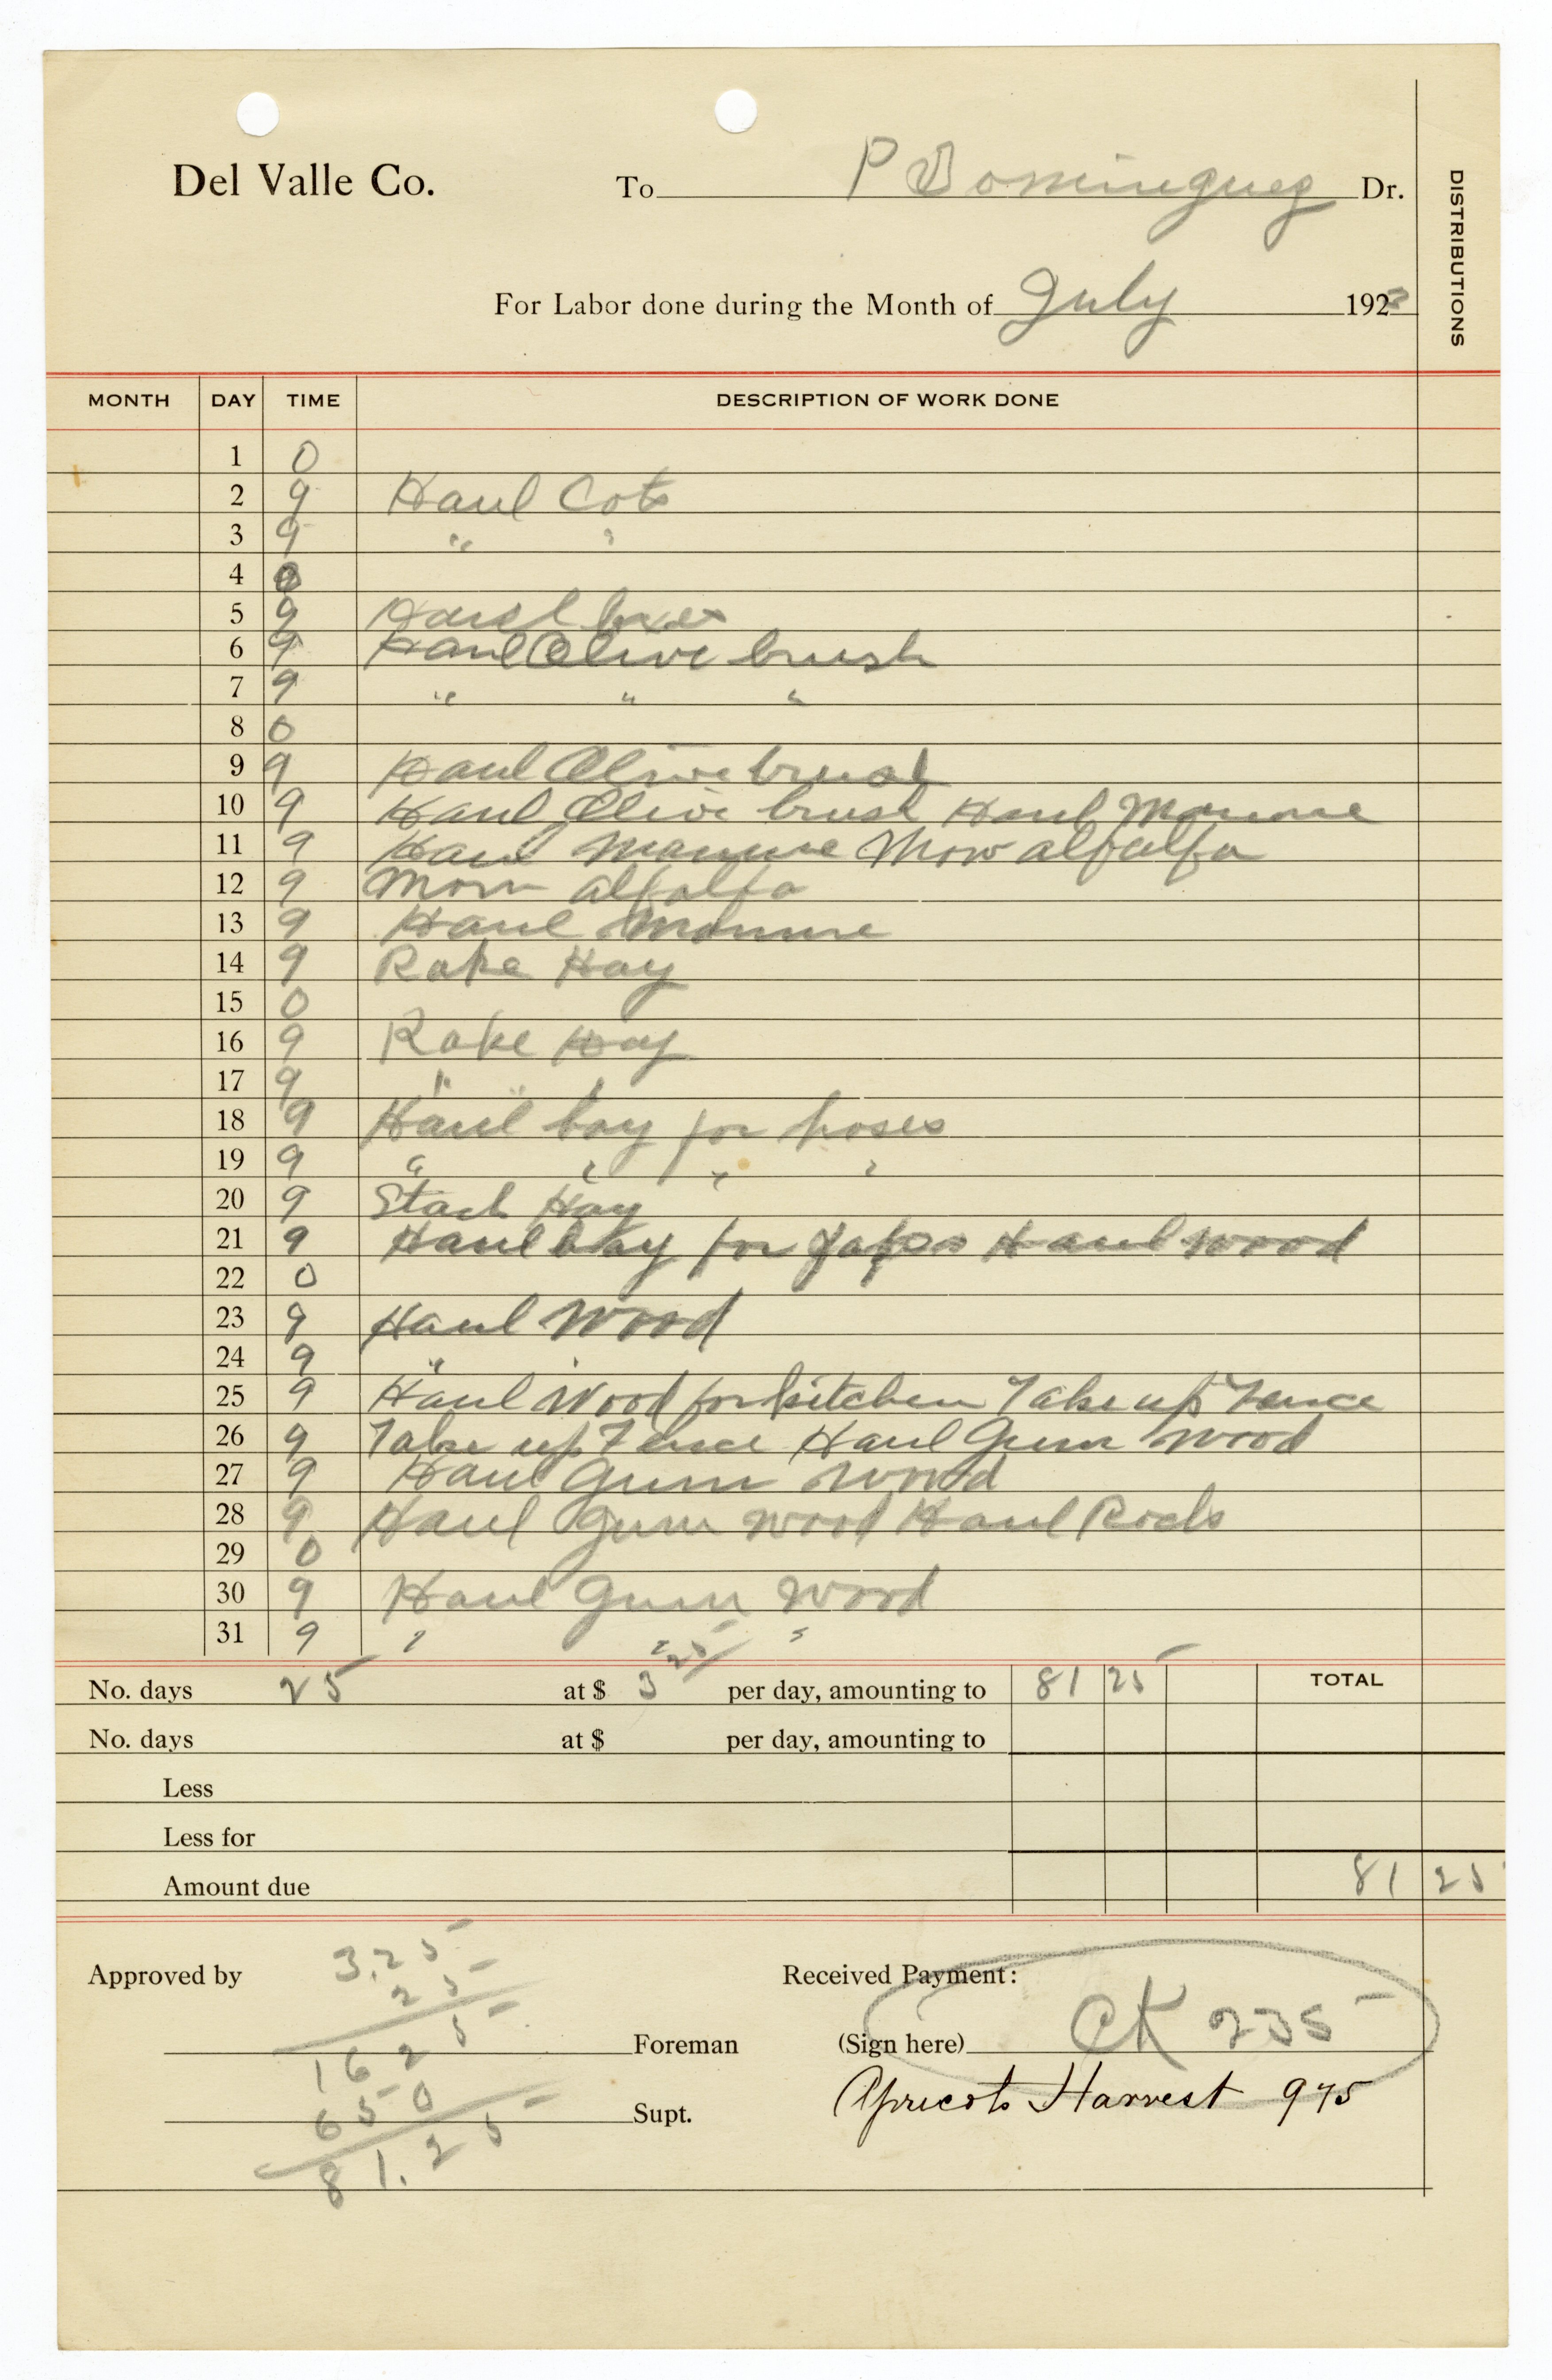 Del Valle Co. To P Dominguez Dr.
DISTRIBUTIONS
For Labor done during the Month of July 1923
MONTH DAY TIME DESCRIPTION OF WORK DONE
1 0
2 9 Haul Cots
3 9 " "
4 0
5 9 Haul boxes
6 9 Haul Olive brush
7 9 " " "
8 0
9 9 Haul Olive brush
10 9 Haul Olive brush Haul Manure
11 9 Haul Manure Mow alfalfa
12 9 Mow alfalfa
13 9 Haul Manure
14 9 Rake Hay
15 0
16 9 Rake Hay
17 9 " "
18 9 Haul hay for hoses
19 9 " " " "
20 9 Stack Hay
21 9 Haul hay for Japs Haul wood
22 0
23 9 Haul Wood
24 9 " "
25 9 Haul Wood for kitchen Take up Fence
26 9 Take up Fence Haul Gum Wood
27 9 Haul Gum Wood
28 9 Haul Gum wood Haul Rocks
29 0
30 9 Haul Gum Wood
31 9 " " "
No. days 25 at $ 3 25/ per day, amounting to 81 25 TOTAL
No. days at $ per day, amounting to
Less
Less for
Amount due 81 25
Approved by
3.25
25
1625
650
81.25
Foreman
Supt.
Received Payment:
(Sign here) CK 235
Apricots Harvest 975